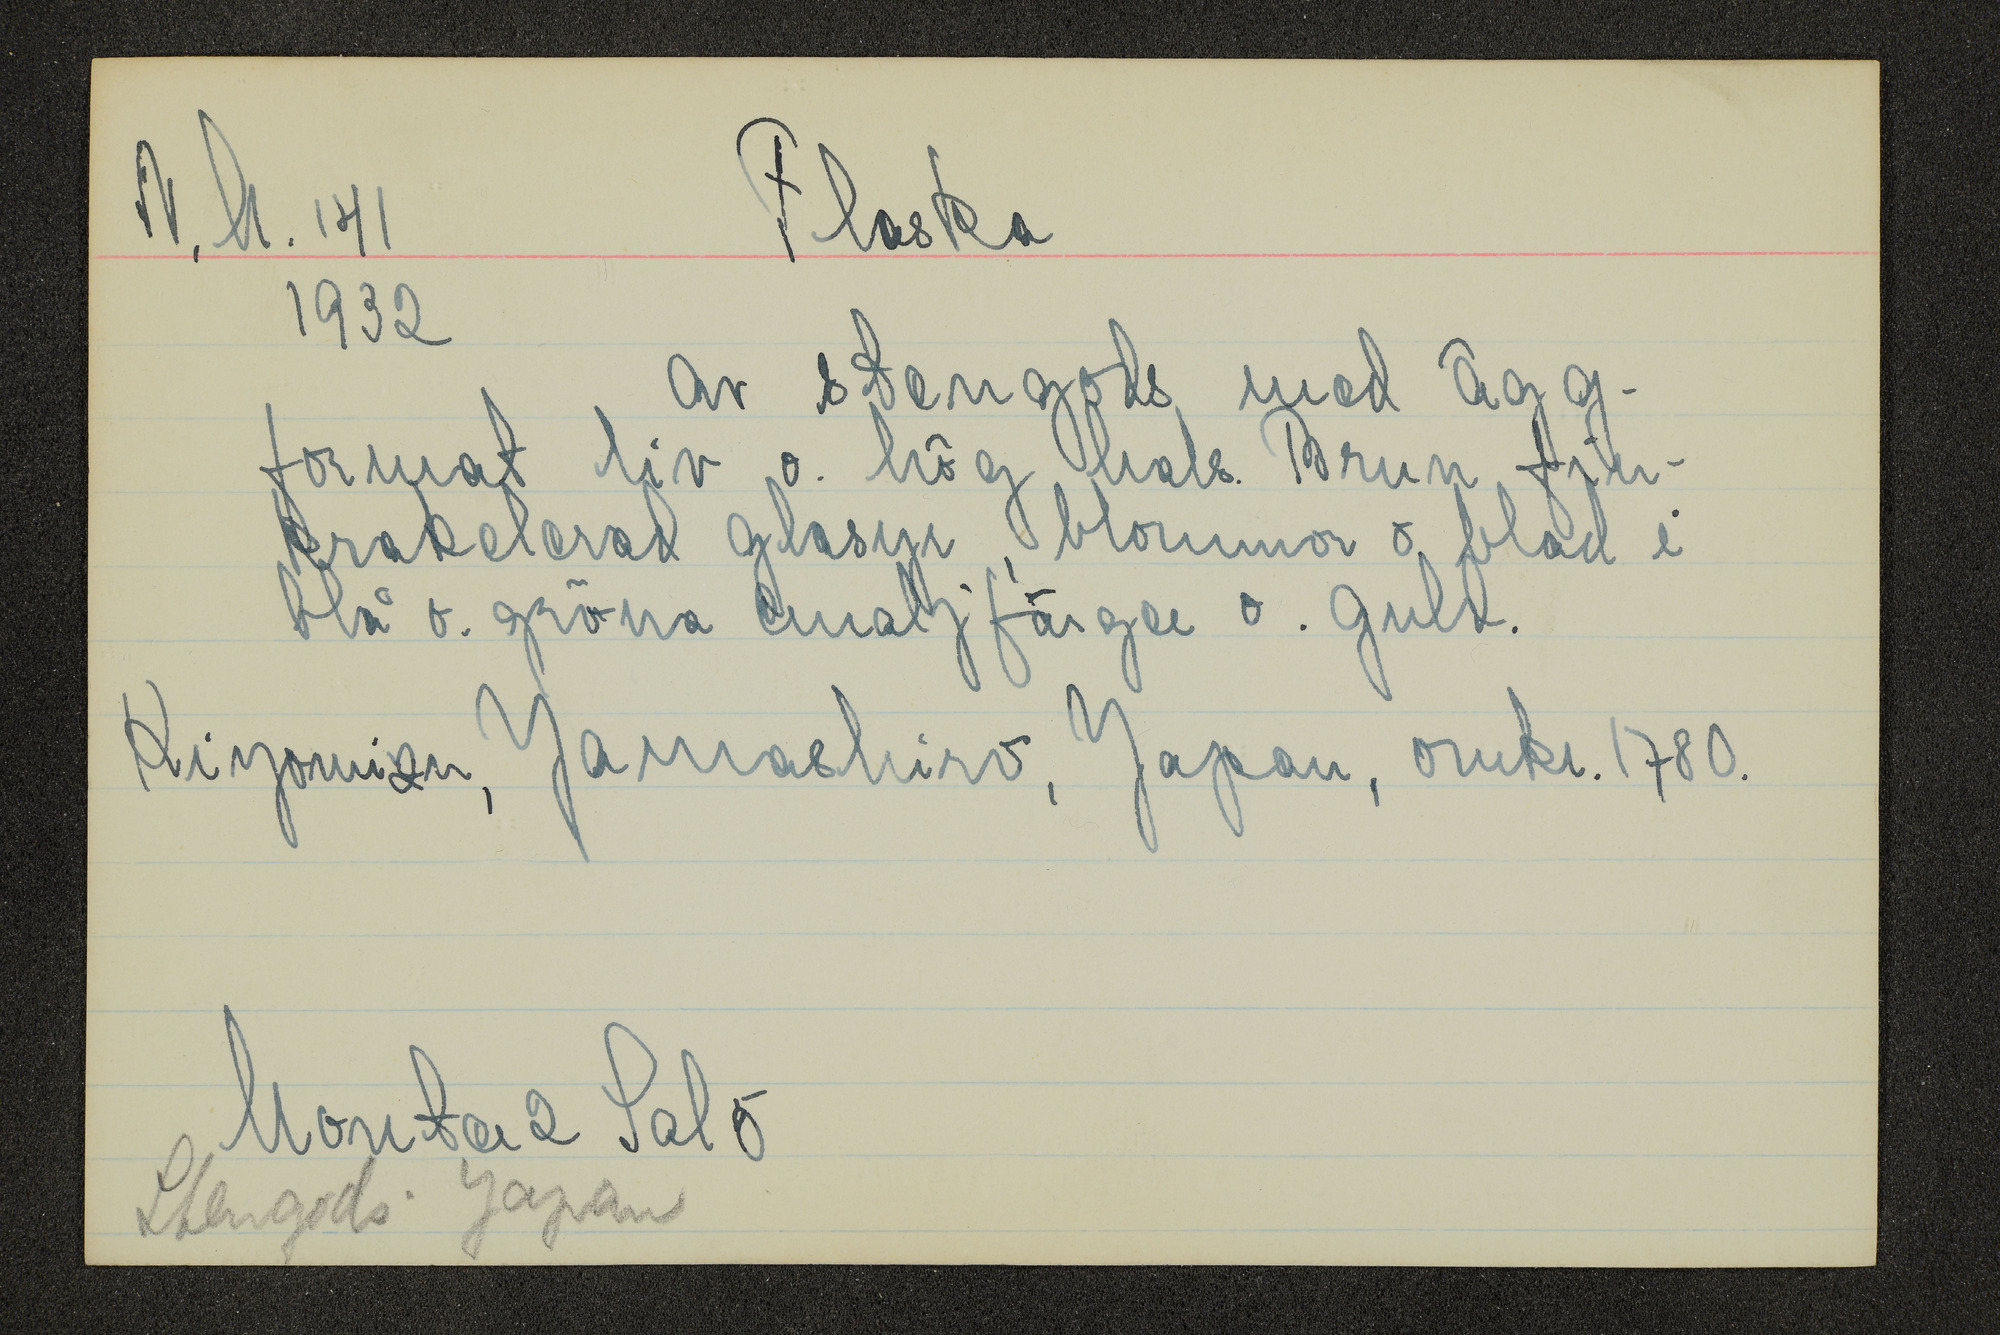 N.M. 141 Flaska
1932
av stengods med ägg-
format liv o. hög hals. Brun fin-
krakelerad glasyr, blommor o blad i
blå o. gröna emaljfärger o. guld.
Kiyomizu, Yamashiro, Yapan, omkr. 1780.
Monter 2 Sal 5
Stengods. Yapan